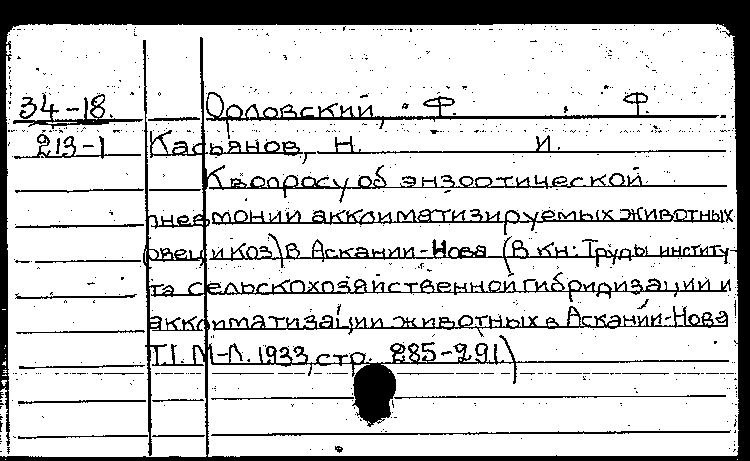 34-18. Орловский, Ф. Ф.
213-1 Касьянов, Н. И.
К вопросу об энзоотической
пневмонии акклиматизируемых животных
(овец и коз) в Аскании-Нова (В кн: Труды институ-
та сельскохозяйственной гибридизации и
акклиматизации животных в Аскании-Нова
Т.I. М-Л. 1933, стр. 285-291)